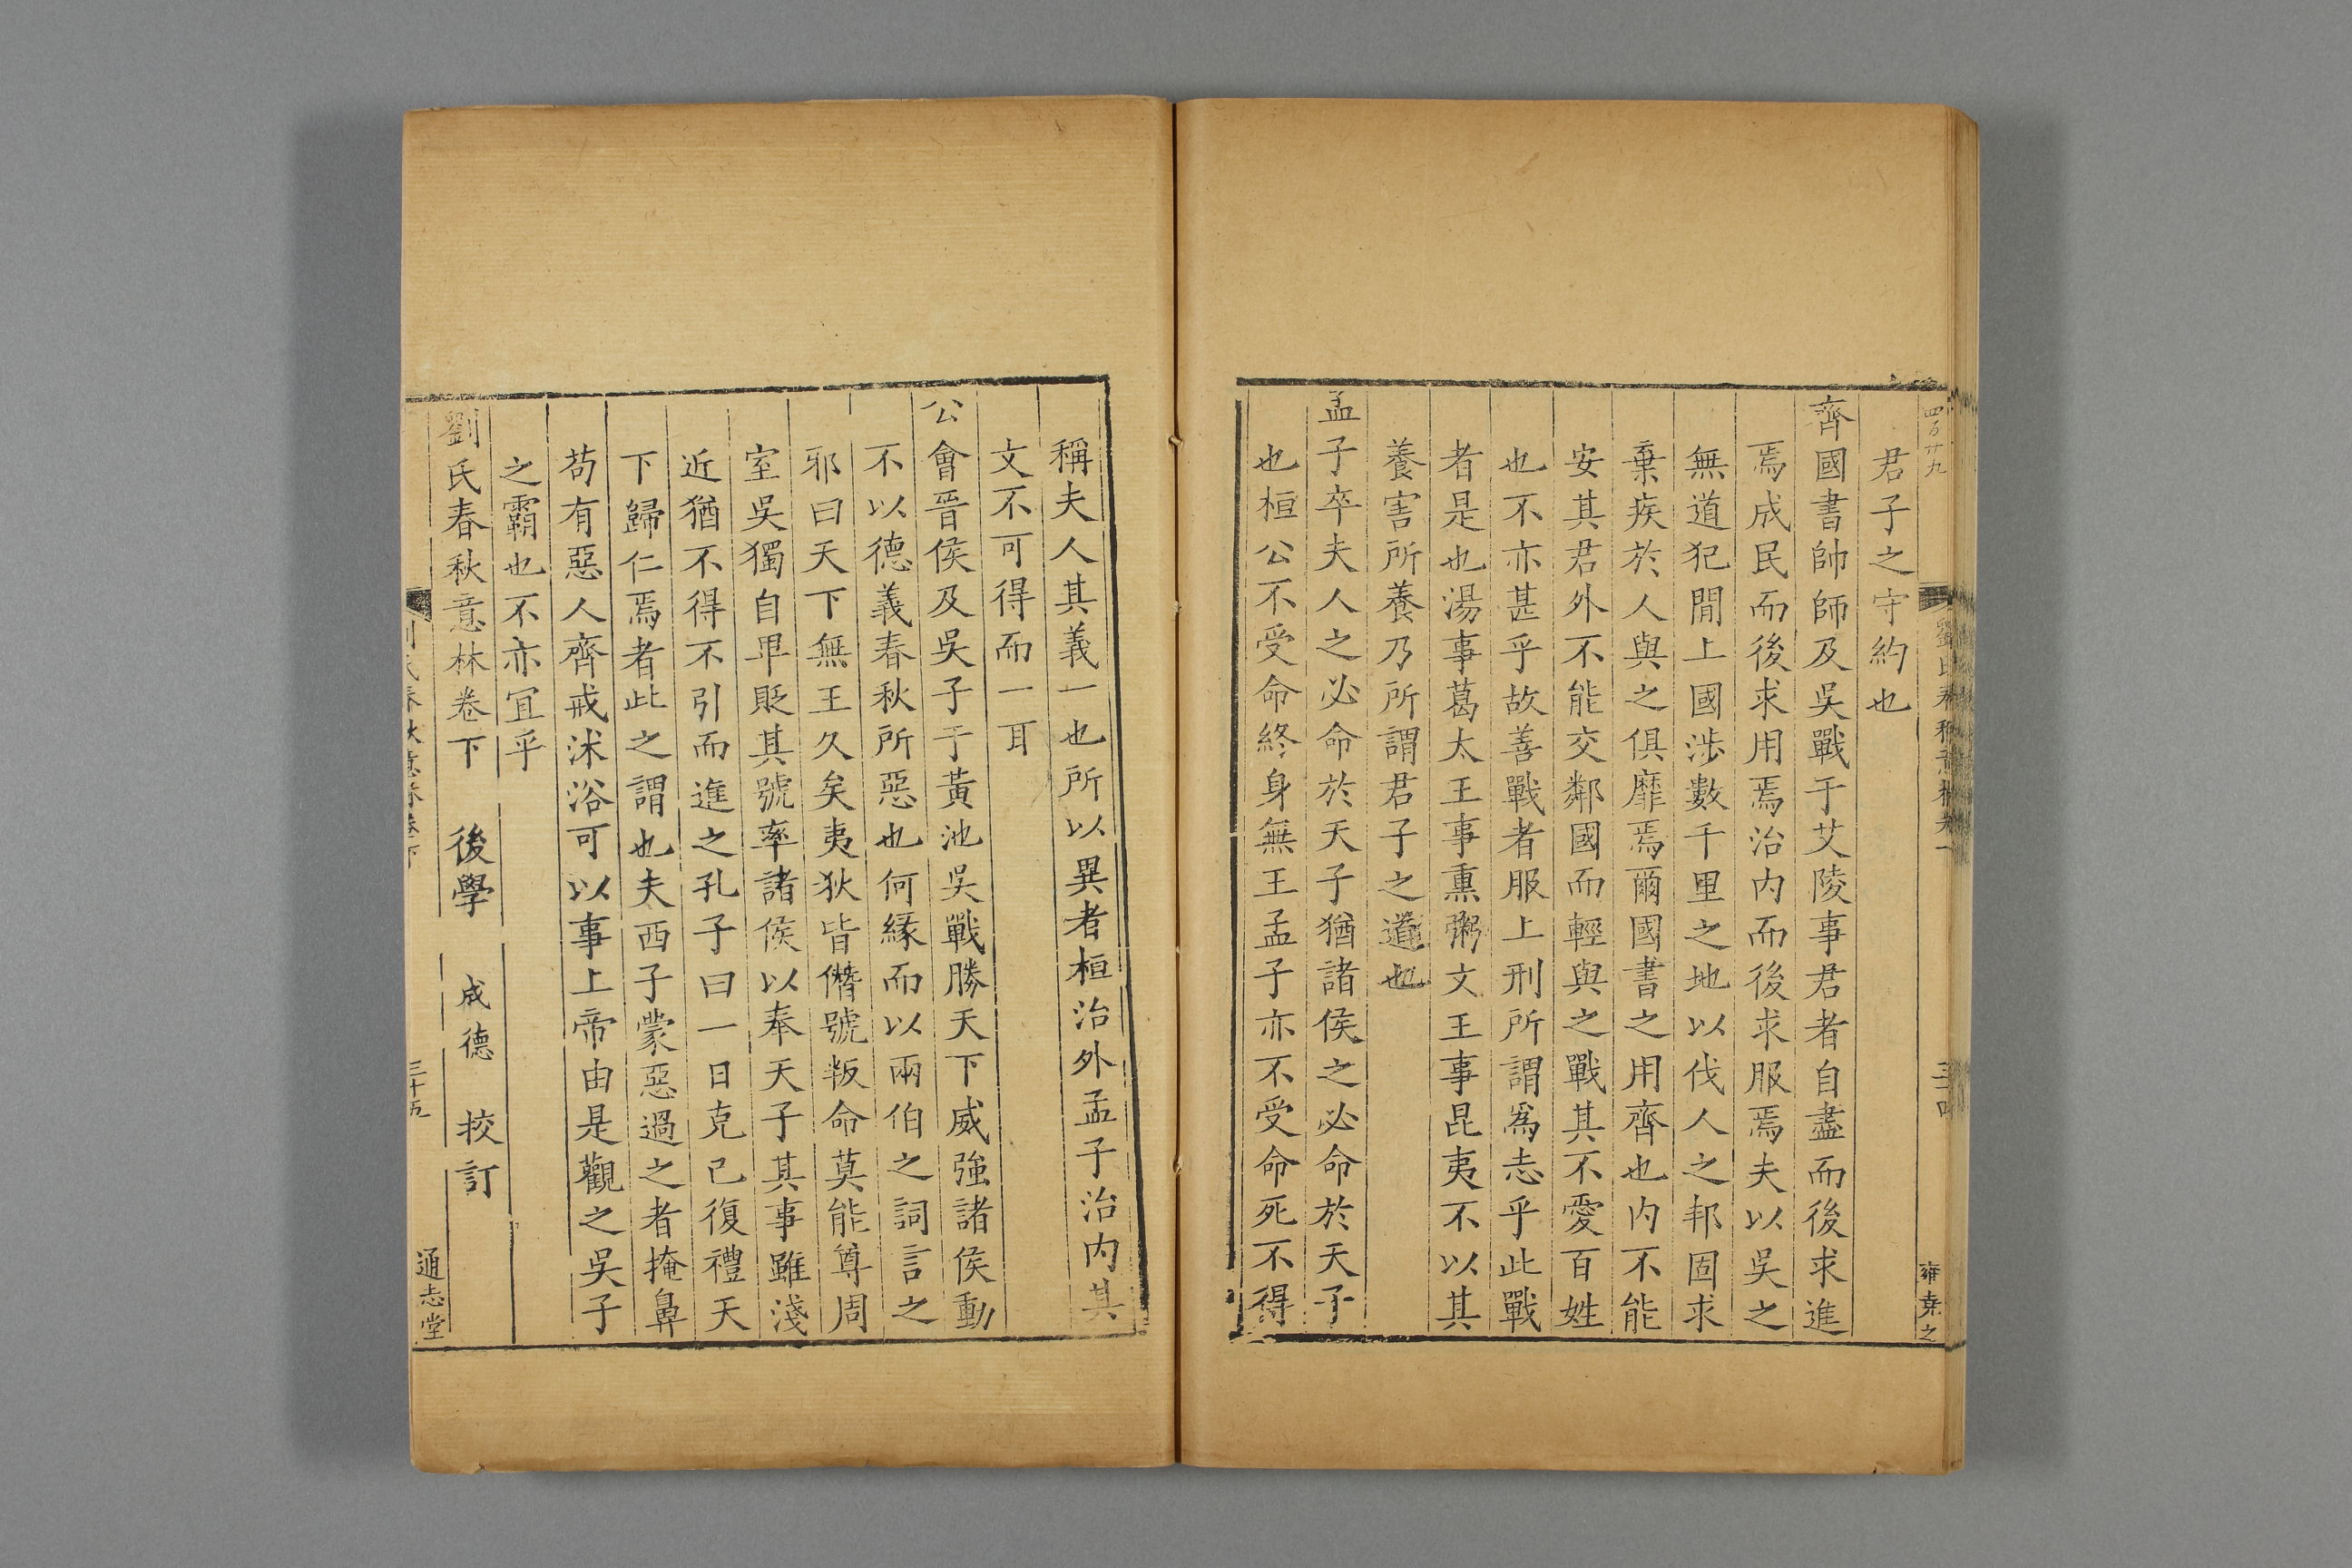 四百廿九
君子之守約也
齊國書帥師及吳戰于艾陵事君者自盡而後求進
焉成民而後求用焉治内而後求服焉夫以吳之
無道犯閒上國涉數千里之地以伐人之邦固求
棄疾於人與之俱靡焉爾國書之用齊也内不能
安其君外不能交鄰國而輕與之戰其不愛百姓
也不亦甚乎故善戰者服上刑所謂爲志乎此戰
者是也湯事葛太王事熏粥文王事昆夷不以其
養害所養乃所謂君子之道也
孟子卒夫人之必命於天子猶諸侯之必命於天子
也桓公不受命終身無王孟子亦不受命死不得
稱夫人其義一也所以異者桓治外孟子治内其
文不可得而一耳
公會晉侯及吳子于黃池吳戰勝天下威強諸侯動
不以德義春秋所惡也何緣而以兩伯之詞言之
邪曰天下無王久矣夷狄皆僭號叛命莫能尊周
室吳獨自卑貶其號率諸侯以奉天子其事雖淺
近猶不得不引而進之孔子曰一日克己復禮天
下歸仁焉者此之謂也夫西子蒙惡過之者掩鼻
苟有惡人齊戒沭浴可以事上帝由是觀之吳子
之霸也不亦宜乎
劉氏春秋意林卷下 後學 成德 挍訂
三十五
通志堂